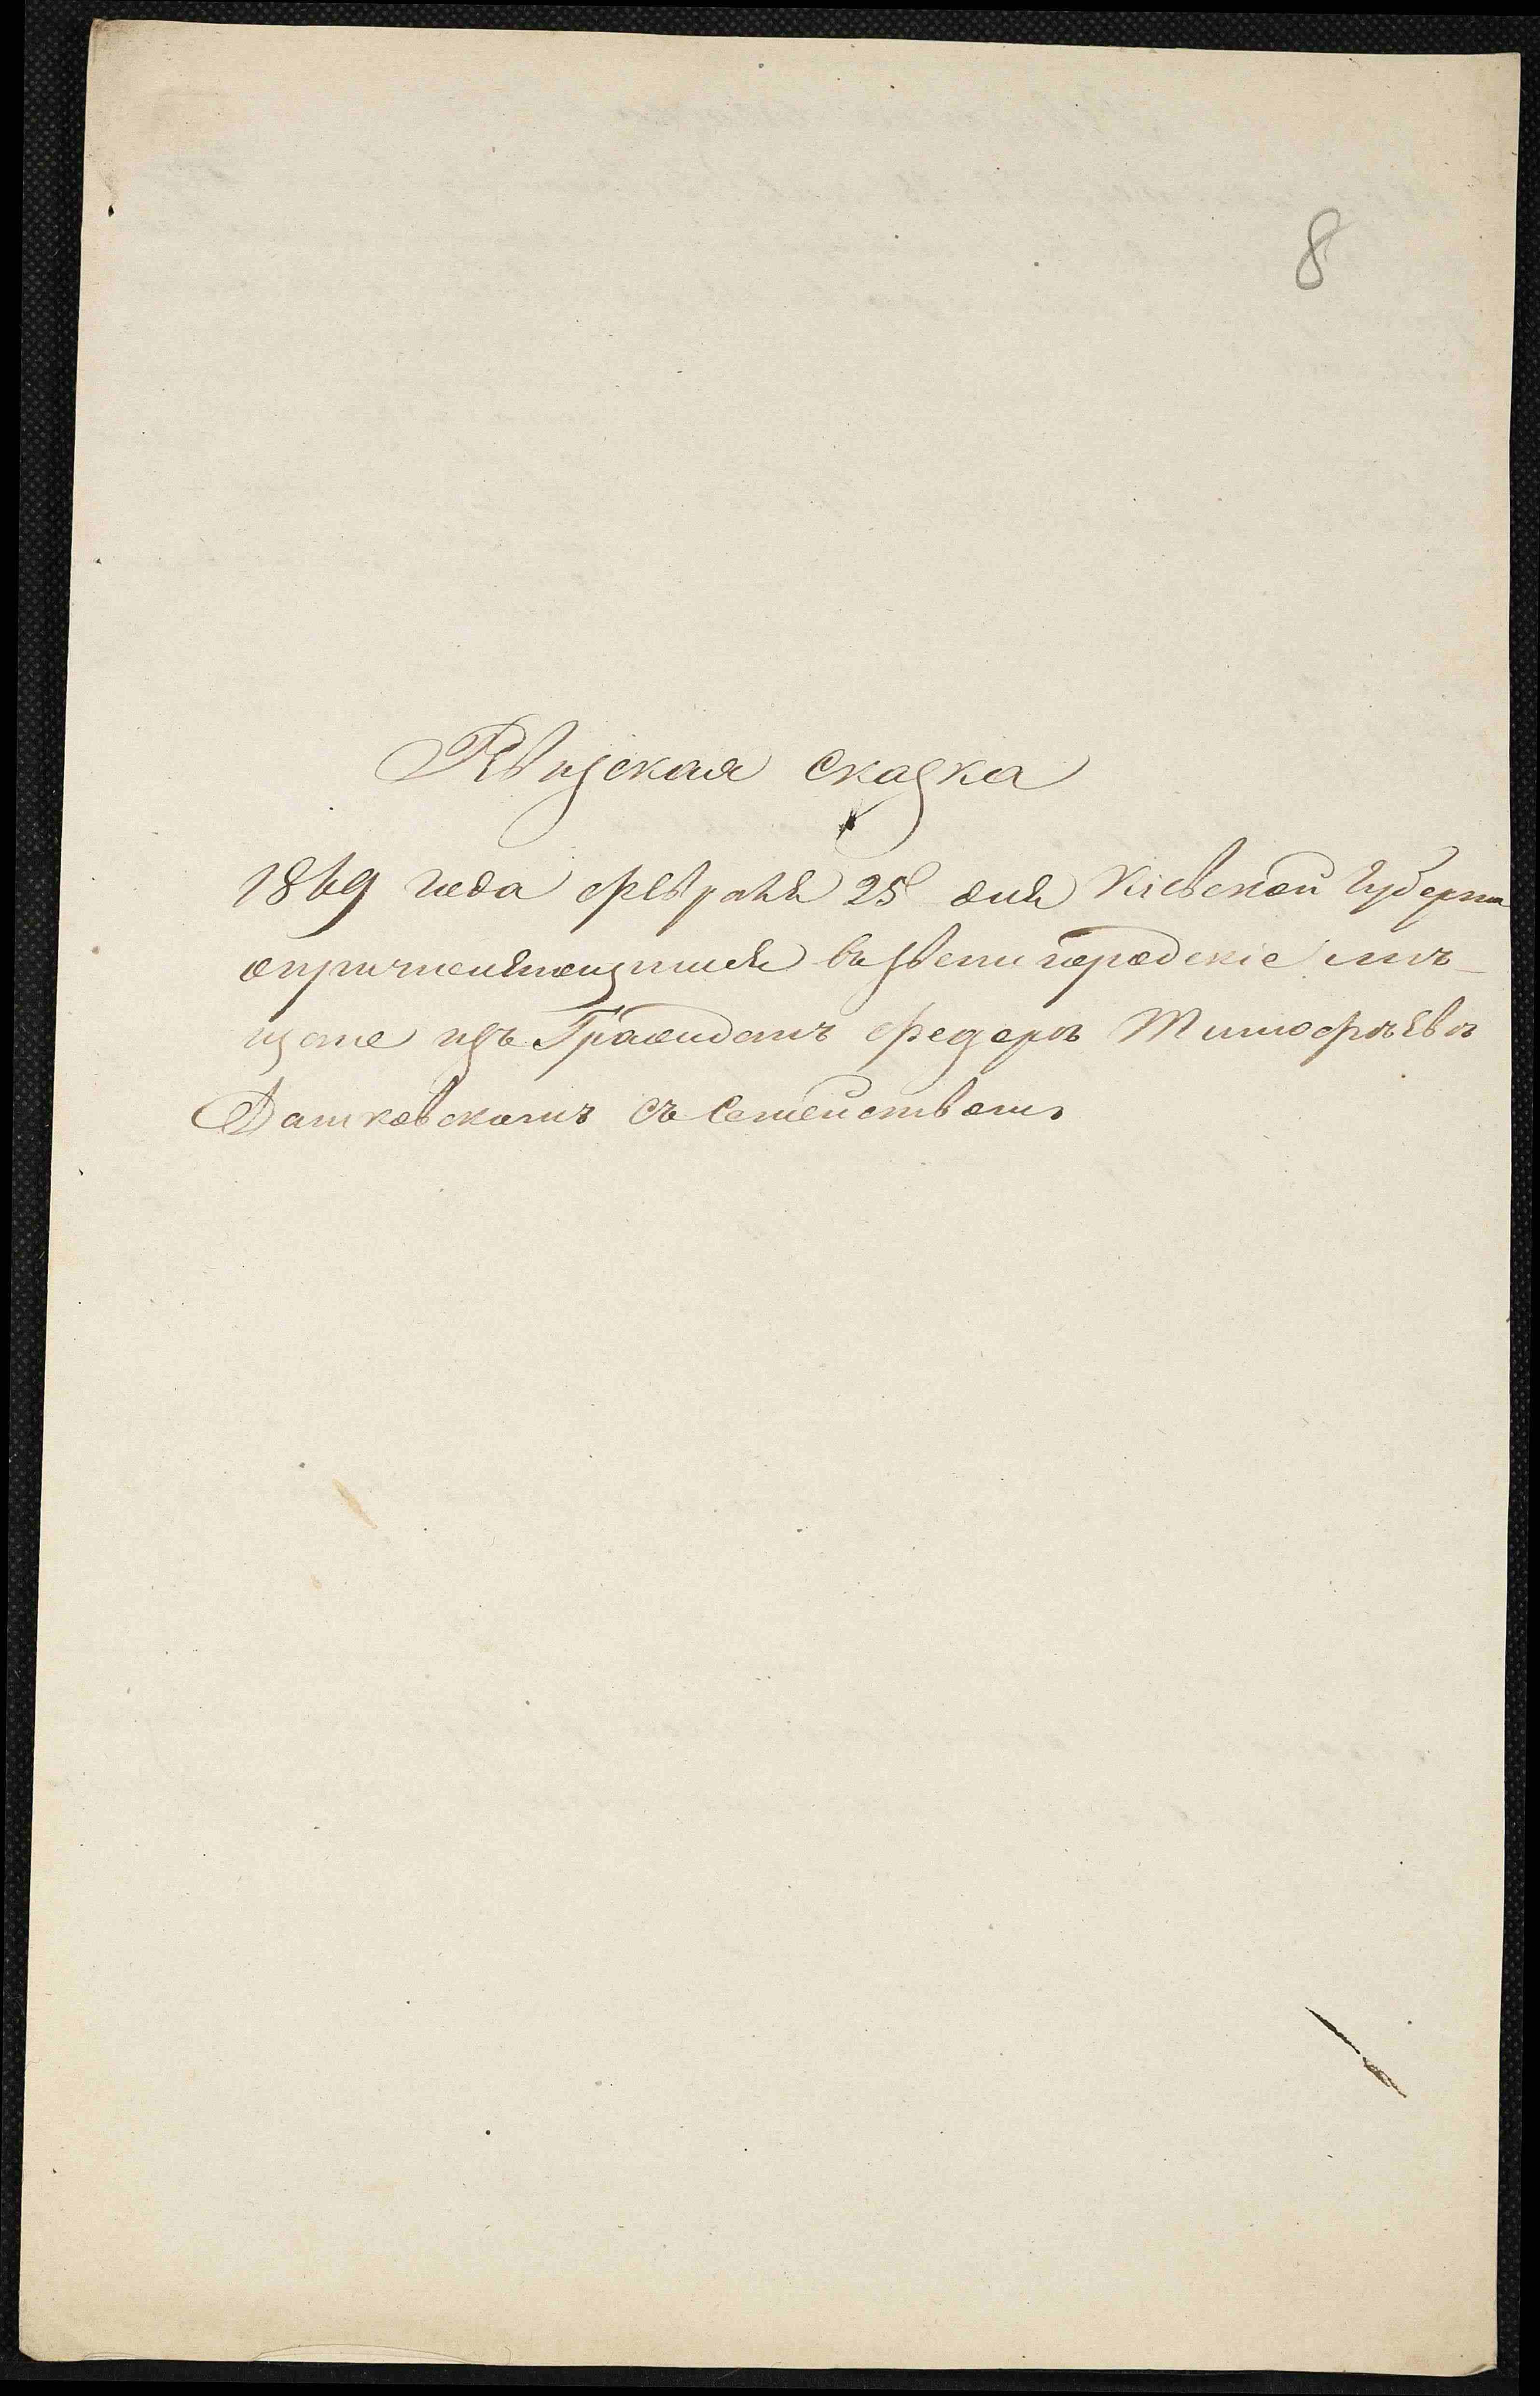 8
Ревизская сказка
1869 года февраля 25 дня Кіевской Губерніи
опричисляющимся въ Звенигородскіе мѣ-
щане изъ Гражданъ Федоръ Тимофѣевъ
Дашковскомъ съ Семействомъ